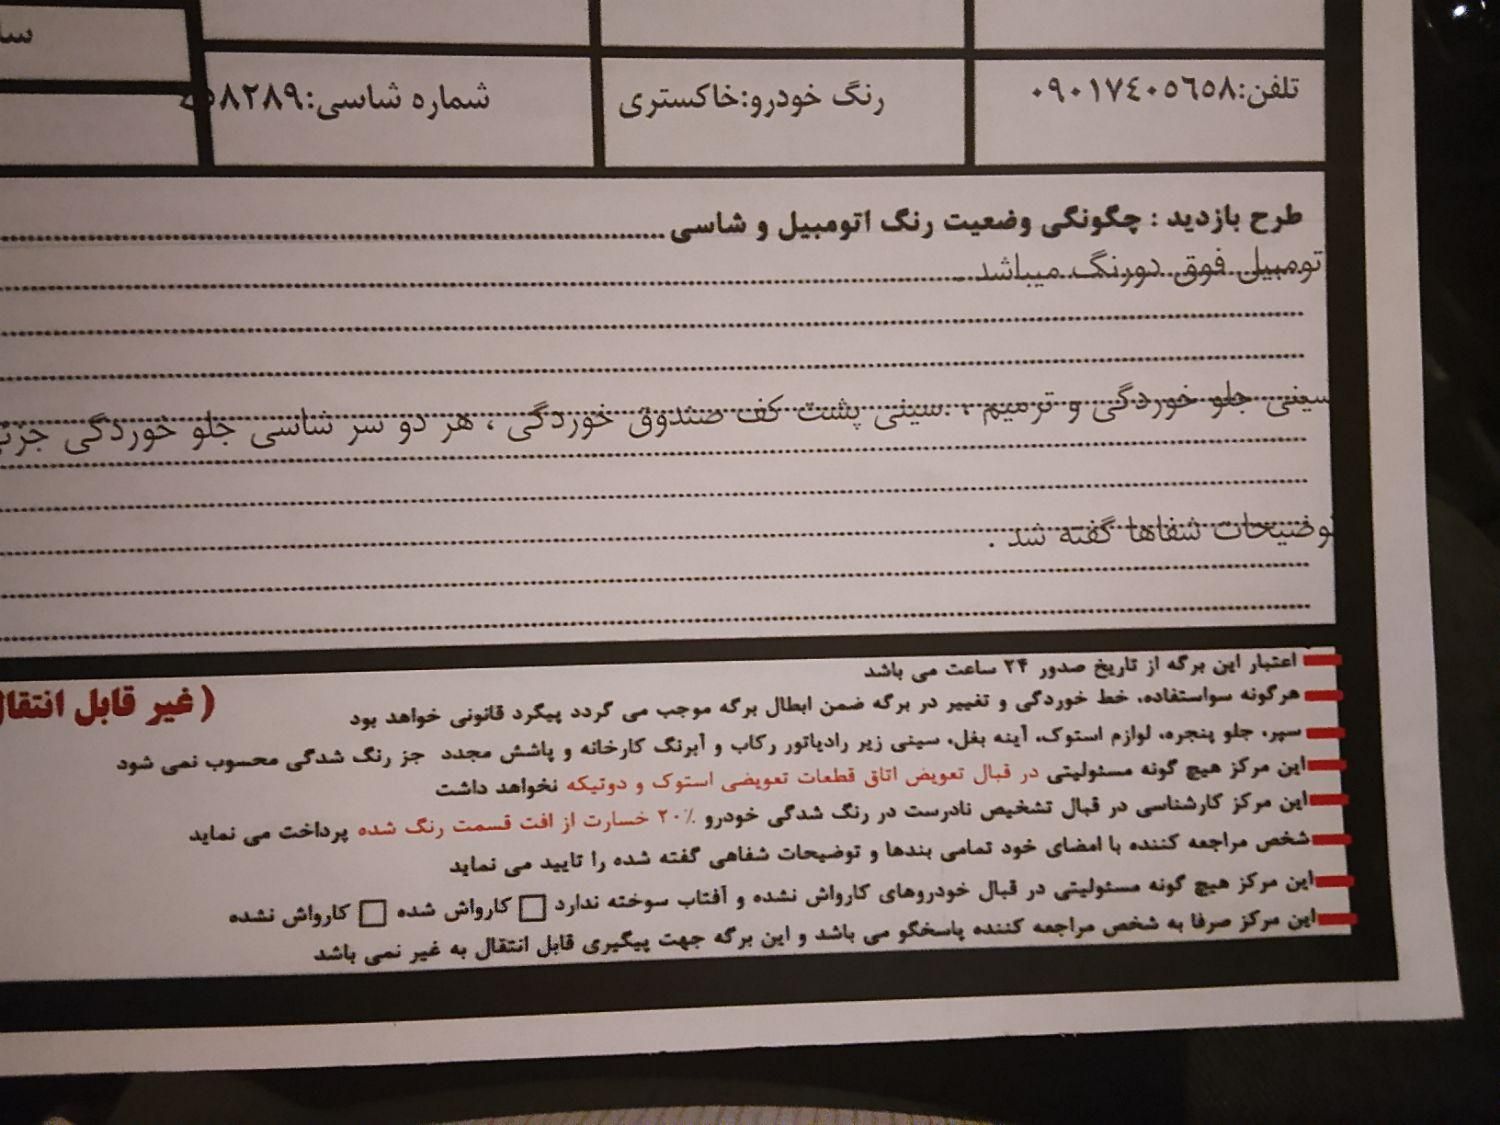 تلفن:٠٩٠١٧٤٠٥٦٥٨
رنگ خودرو:خاکستری
شماره شاسی:۸۲۸۹
طرح بازدید : چگونگی وضعیت رنگ اتومبیل و شاسی
تومبیل فوق دورنگ میباشد
سینی جلو خوردگی و ترمیم ، سینی پشت کف صندوق خوردگی ، هر دو سر شاسی جلو خوردگی
توضیحات شفاها گفته شد .
اعتبار این برگه از تاریخ صدور ۲۴ ساعت می باشد
هرگونه سواستفاده، خط خوردگی و تغییر در برگه ضمن ابطال برگه موجب می گردد پیگرد قانونی خواهد بود
( غیر قابل انتقال
سپر، جلو پنجره، لوازم استوک، آینه بغل، سینی زیر رادیاتور رکاب و آبرنگ کارخانه و پاشش مجدد جز رنگ شدگی محسوب نمی شود
این مرکز هیچ گونه مسئولیتی در قبال تعویض اتاق قطعات تعویضی استوک و دوتیکه نخواهد داشت
این مرکز کارشناسی در قبال تشخیص نادرست در رنگ شدگی خودرو ۲۰٪ خسارت از افت قسمت رنگ شده پرداخت می نماید
شخص مراجعه کننده با امضای خود تمامی بندها و توضیحات شفاهی گفته شده را تایید می نماید
این مرکز هیچ گونه مسئولیتی در قبال خودروهای کارواش نشده و آفتاب سوخته ندارد □ کارواش شده □ کارواش نشده
این مرکز صرفا به شخص مراجعه کننده پاسخگو می باشد و این برگه جهت پیگیری قابل انتقال به غیر نمی باشد